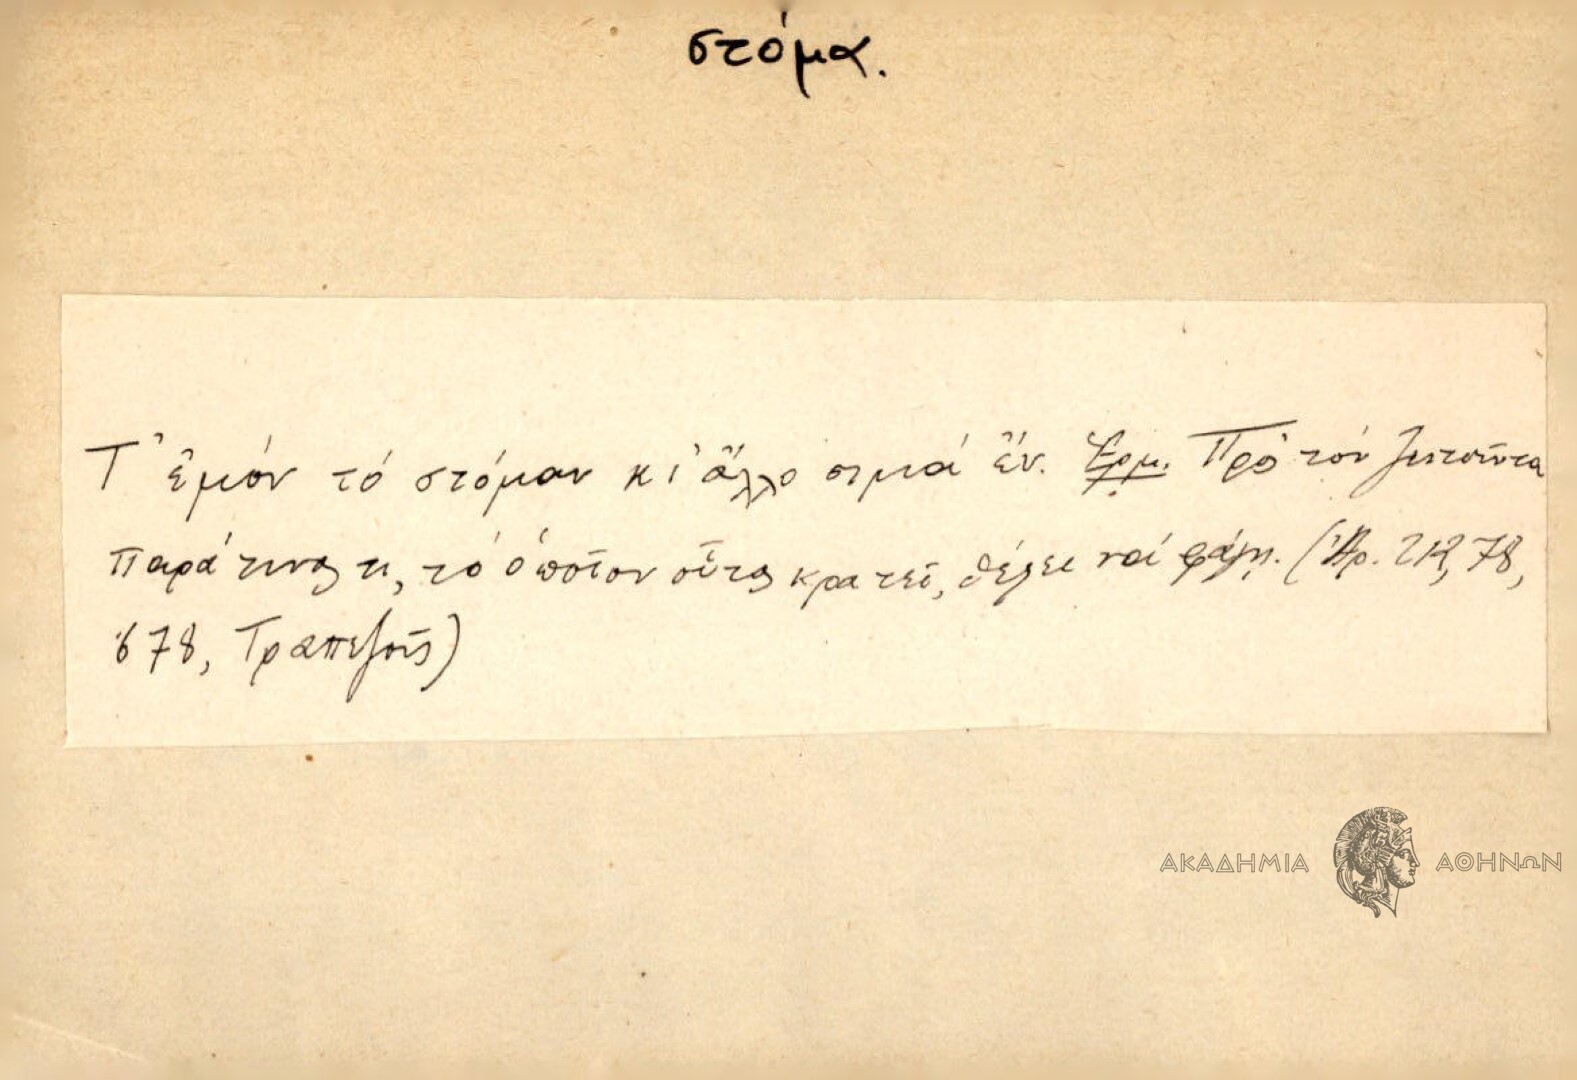 στόμα.
Τ' ἐμόν τό στόμαν κι' ἄλλο σιμά ἔν. Ἑρμ. Πρό τόν ζητοῦντα
παρά τινος τι, τό ὁποῖον οὗτος κρατεῖ, θέλει νά φάγῃ. (Ἀρ. 78,
678, Τραπεζοῦς)
ΑΚΑΔΗΜΙΑ ΑΘΗΝΩΝ